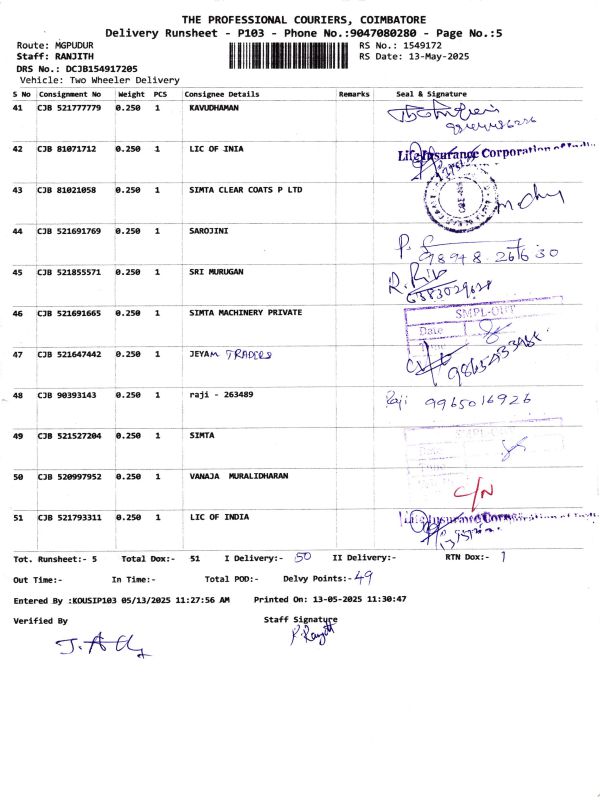 THE PROFESSIONAL COURIERS, COIMBATORE
Delivery Runsheet - P103 - Phone No.:9047080280 - Page No.:5
Route: MGPUDUR RS No.: 1549172
Staff: RANJITH RS Date: 13-May-2025
DRS No.: DCJB154917205
Vehicle: Two Wheeler Delivery
S No Consignment No Weight PCS Consignee Details Remarks Seal & Signature
41 CJB 521777779 0.250 1 KAVUDHAMAN
42 CJB 81071712 0.250 1 LIC OF INIA Life Insurance Corporation of Indi
43 CJB 81021058 0.250 1 SIMTA CLEAR COATS P LTD
44 CJB 521691769 0.250 1 SAROJINI 98948 26630
45 CJB 521855571 0.250 1 SRI MURUGAN 6383029628
46 CJB 521691665 0.250 1 SIMTA MACHINERY PRIVATE SMPL-OBT
Date
Time
47 CJB 521647442 0.250 1 JEYAM TRADERS
48 CJB 90393143 0.250 1 raji - 263489 Raji 9965016926
49 CJB 521527204 0.250 1 SIMTA
50 CJB 520997952 0.250 1 VANAJA MURALIDHARAN C/N
51 CJB 521793311 0.250 1 LIC OF INDIA Life Insurance Corporation of Indi
Tot. Runsheet:- 5 Total Dox:- 51 I Delivery:- 50 II Delivery:- RTN Dox:- 1
Out Time:- In Time:- Total POD:- Delvy Points:- 49
Entered By :KOUSIP103 05/13/2025 11:27:56 AM Printed On: 13-05-2025 11:30:47
Verified By Staff Signature